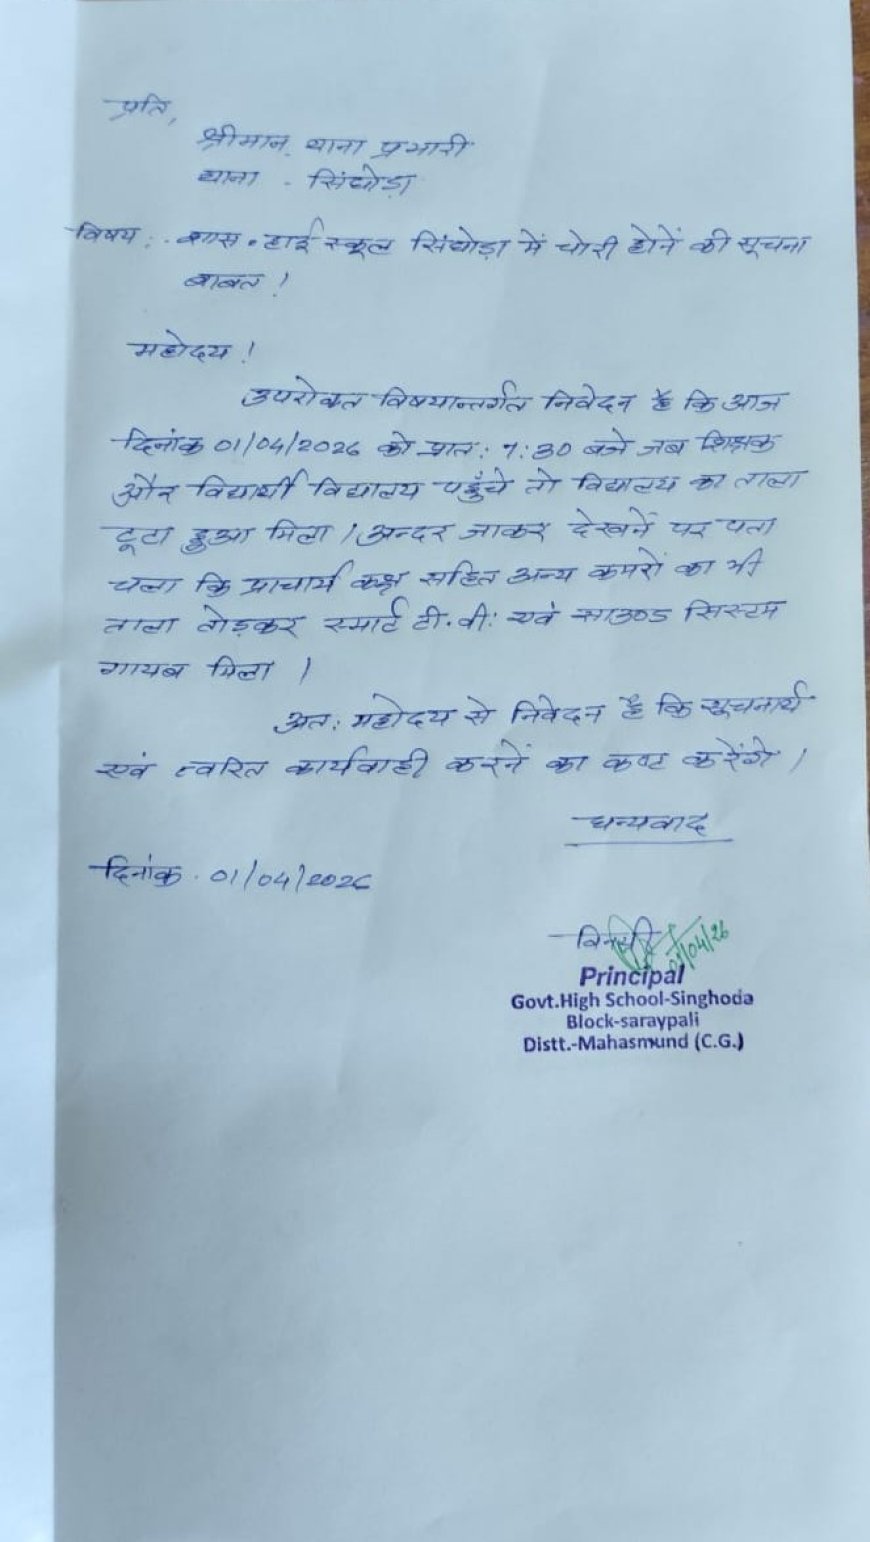 प्रति,
श्रीमान. थाना प्रभारी
थाना - सिंघोड़ा
विषय :- शास. हाई स्कूल सिंघोड़ा में चोरी होनें की सूचना
बाबत !
महोदय !
उपरोक्त विषयान्तर्गत निवेदन है कि आज
दिनांक 01/04/2026 को प्रात: 7:30 बजे जब शिक्षक
और विद्यार्थी विद्यालय पहुँचे तो विद्यालय का ताला
टूटा हुआ मिला । अन्दर जाकर देखनें पर पता
चला कि प्राचार्य कक्ष सहित अन्य कमरों का भी
ताला तोड़कर स्मार्ट टी.वी. एवं साउण्ड सिस्टम
गायब मिला ।
अत: महोदय से निवेदन है कि सूचनार्थ
एवं त्वरित कार्यवाही करनें का कष्ट करेंगे ।
धन्यवाद
दिनांक . 01/04/2026
01/04/26
Principal
Govt.High School-Singhoda
Block-saraypali
Distt.-Mahasmund (C.G.)